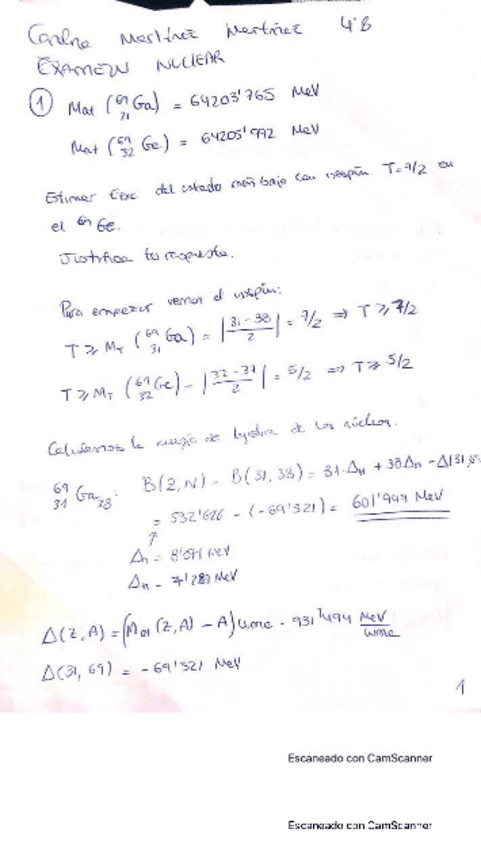 Martínez Martínez 4ºB
EXAMEN NUCLEAR
① Mat (⁶⁹₃₁Ga) = 64203'765 MeV
Mat (⁶⁹₃₂Ge) = 64205'992 MeV
Estimar Eexc del estado más bajo con isospín T=7/2 en
el ⁶⁹Ge.
Justifica tu respuesta.
Para empezar vemos el isospín:
T ≥ M_T (⁶⁹₃₁Ga) = |31-38/2| = 7/2 ⇒ T ≥ 7/2
T ≥ M_T (⁶⁹₃₂Ge) = |32-37/2| = 5/2 ⇒ T ≥ 5/2
Calculamos la energía de ligadura de los núcleos.
⁶⁹₃₁Ga₃₈: B(Z,N) = B(31,38) = 31·Δ_H + 38Δ_n - Δ(31,6
= 532'626 - (-69'321) = 601'947 MeV
↑
Δ_H = 8'071 MeV
Δ_n = 7'289 MeV
Δ(Z,A) = (M_at (Z,A) - A) uma · 931'494 MeV/uma
Δ(31,69) = -69'321 MeV
1
Escaneado con CamScanner
Escaneado con CamScanner